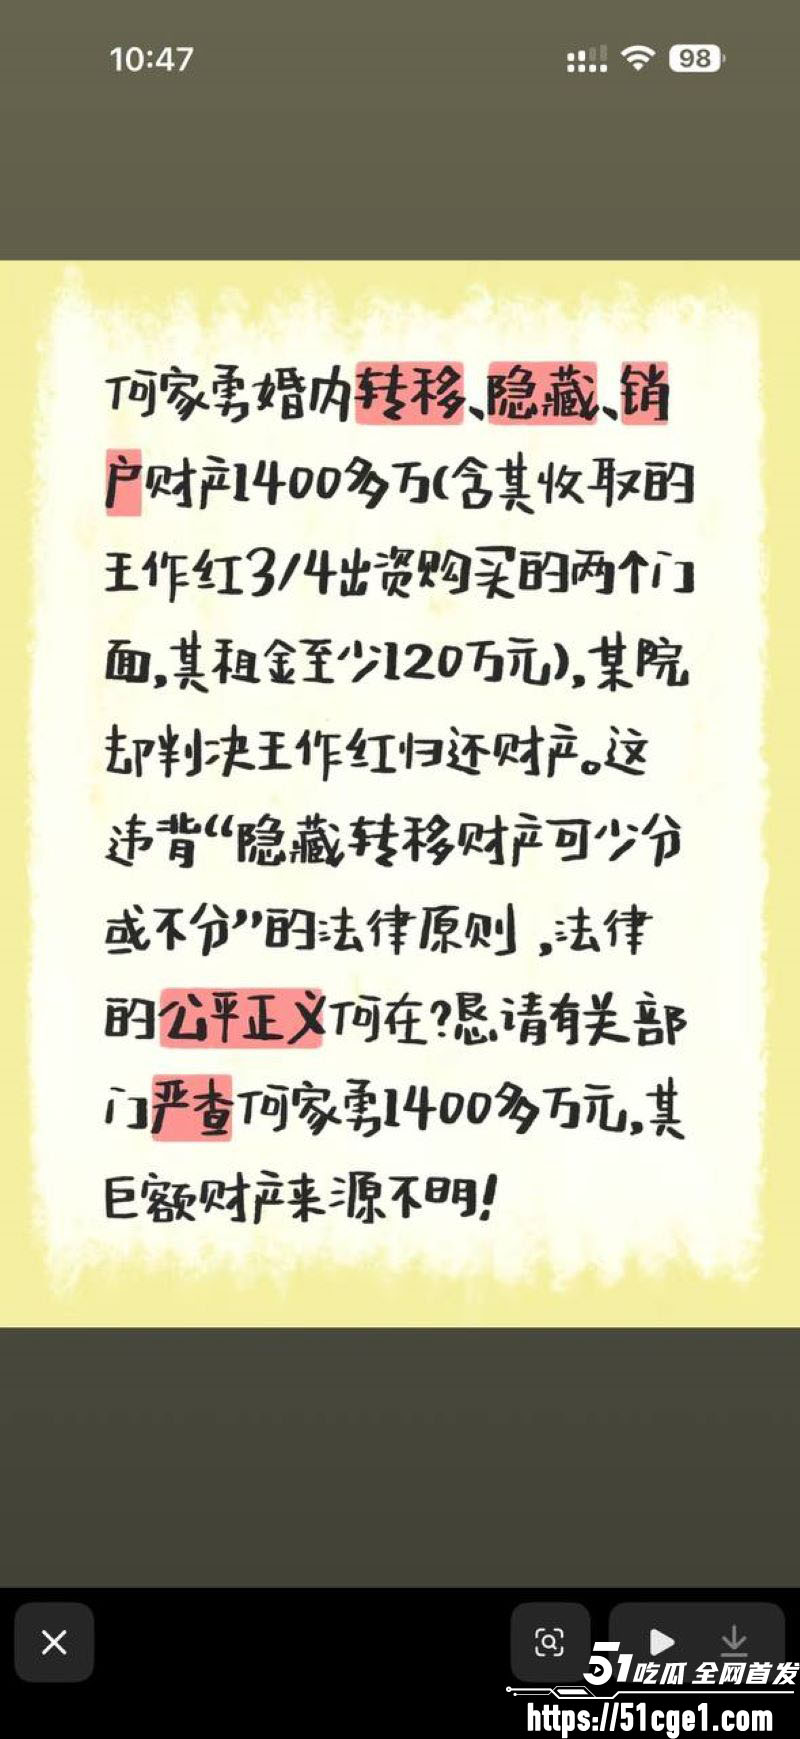 10:47
98
何家勇婚内转移、隐藏、销
户财产1400多万(含其收取的
王作红3/4出资购买的两个门
面,其租金至少120万元),某院
却判决王作红归还财产。这
违背“隐藏转移财产可少分
或不分”的法律原则,法律
的公平正义何在?恳请有关部
门严查何家勇1400多万元,其
巨额财产来源不明!
51吃瓜 全网首发
https://51cge1.com